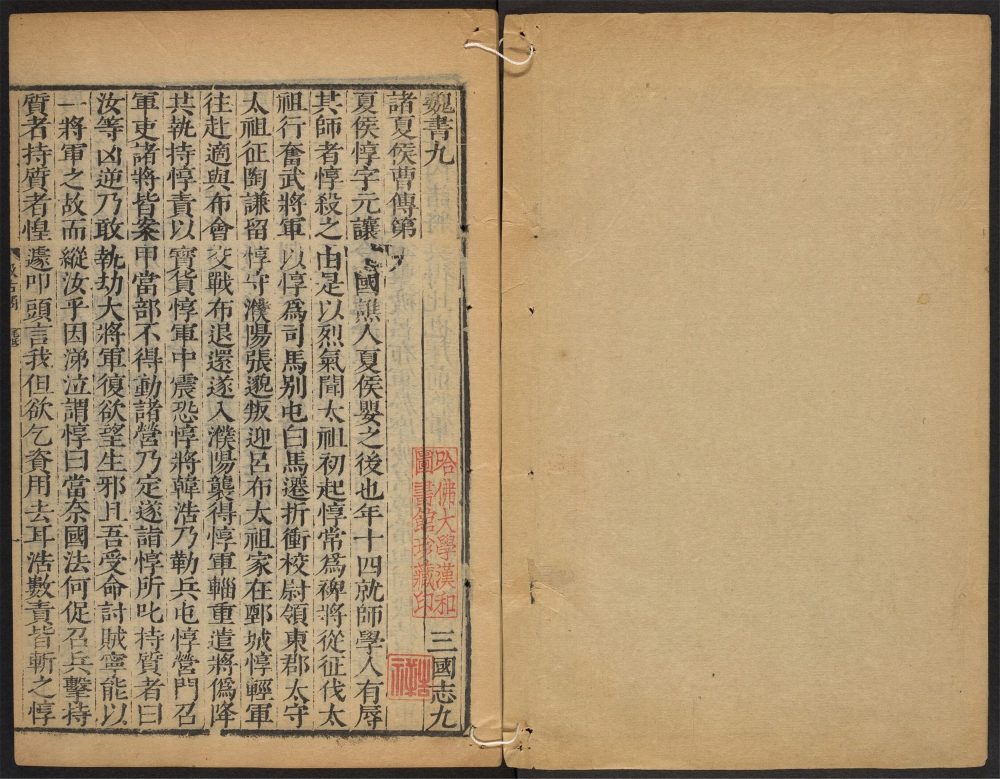 魏書九
三國志九
諸夏侯曹傳第九
夏侯惇字元讓沛國譙人夏侯嬰之後也年十四就師學人有辱
其師者惇殺之由是以烈氣聞太祖初起惇常爲裨將從征伐太
祖行奮武將軍以惇爲司馬別屯白馬遷折衝校尉領東郡太守
太祖征陶謙留惇守濮陽張邈叛迎呂布太祖家在鄄城惇輕軍
往赴適與布會交戰布退還遂入濮陽襲得惇軍輜重遣將僞降
共執持惇責以寶貨惇軍中震恐惇將韓浩乃勒兵屯惇營門召
軍吏諸將皆案甲當部不得動諸營乃定遂詣惇所叱持質者曰
汝等凶逆乃敢執劫大將軍復欲望生邪且吾受命討賊寧能以
一將軍之故而縱汝乎因涕泣謂惇曰當奈國法何促召兵擊持
質者持質者惶遽叩頭言我但欲乞資用去耳浩數責皆斬之惇
哈佛大學漢和
圖書館珍藏印